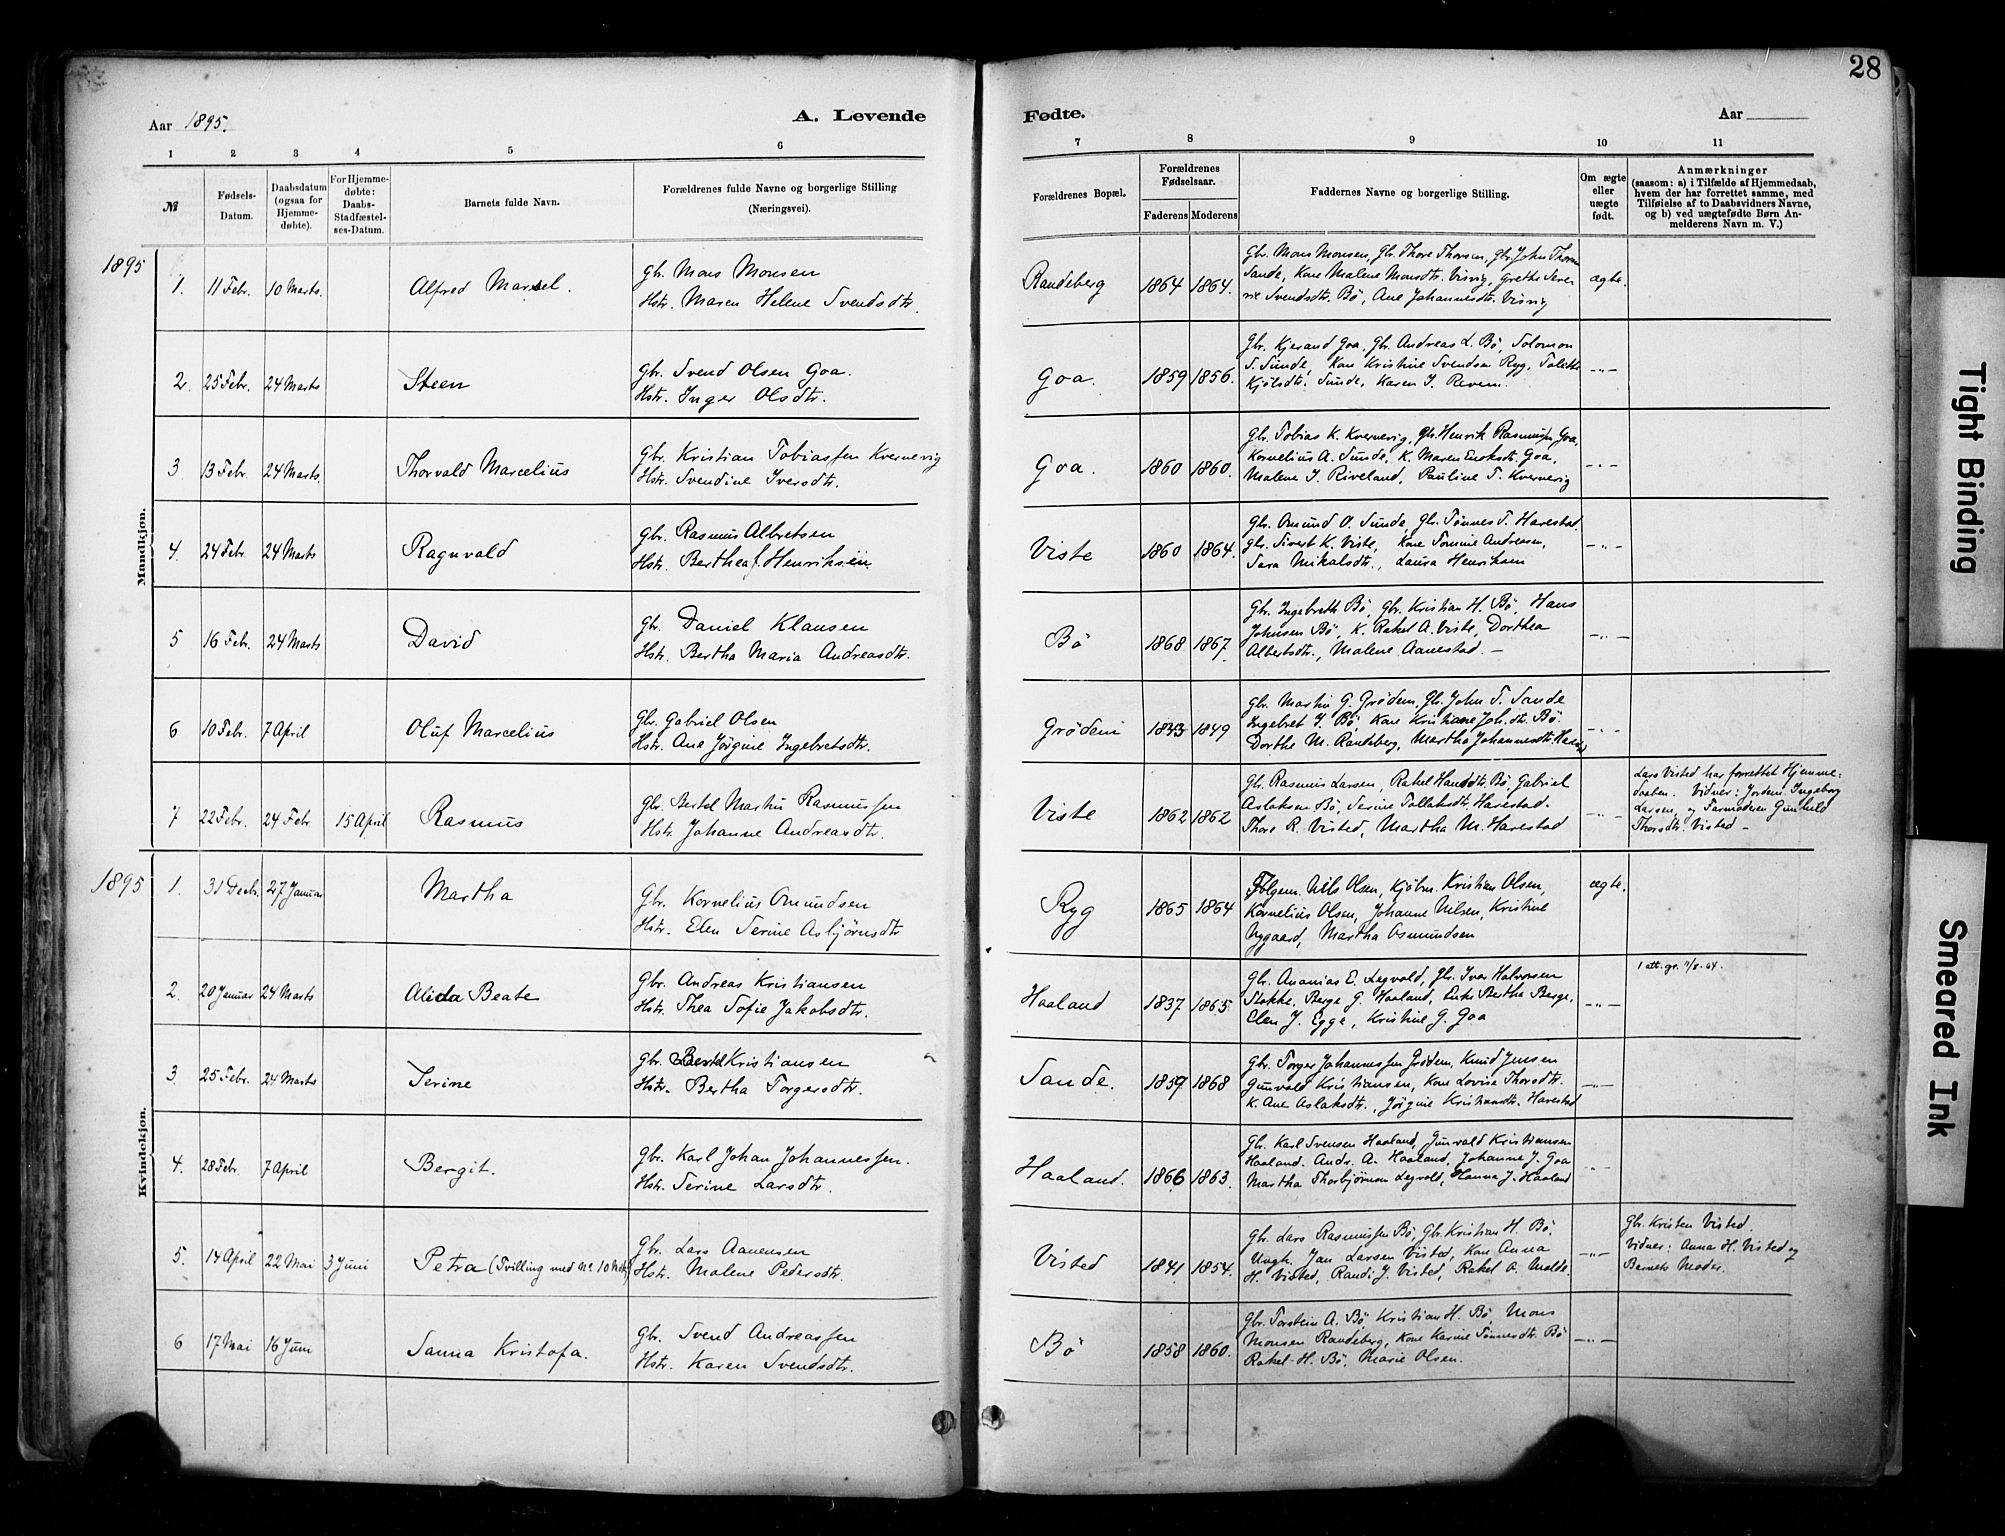 28
Aar 1895.
A. Levende
Fødte.
Aar
1 2 3 4 5 6 7 8 9 10 11
№
Fødsels-
Datum.
Daabsdatum
(ogsaa for
Hjemme-
døbte).
For Hjemme-
døbte:
Daabs-
Stadfæstel-
ses-Datum.
Barnets fulde Navn.
Forældrenes fulde Navne og borgerlige Stilling
(Næringsvei).
Forældrenes Bopæl.
Forældrenes
Fødselsaar.
Faderens Moderens
Faddernes Navne og borgerlige Stilling.
Om ægte
eller
uægte
født.
Anmærkninger
(saasom: a) i Tilfælde af Hjemmedaab,
hvem der har forrettet samme, med
Tilføielse af to Daabsvidners Navne,
og b) ved uægtefødte Børn An-
melderens Navn m. V.)
Mandkjøn.
1895
1. 11 Febr. 10 Marts. Alfred Marsel.
Gbr. Mons Monsen
Hstr. Maren Helene Svendsdtr.
Randeberg 1864 1864.
Gbr. Mons Monsen, Gbr. Thore Thorsen, gbr. John Thorsen
Sande, Kone Malene Monsdtr. Visvig, Grethe Seve-
rie Svendsdtr. Bø, Ane Johannesdtr. Visvig
ægte.
2. 25 Febr. 24 Marts Steen
Gbr. Svend Olsen Goa.
Hstr. Inger Olsdtr.
Goa. 1859 1856.
Gbr. Kjerand Goa, Gbr. Andreas L. Bø, Solomon
S. Sunde, Kone Kristine Svendsen Ryg,
Kjølsdtr. Sunde, Karen J.
-"-
3. 13 Febr. 24 Marts. Thorvald Marcelius
Gbr. Kristian Tobiassen Kvernevig
Hstr. Svendine Iversdtr.
Goa. 1860 1860.
Gbr. Tobias K. Kvernevig, Gbr. Henrik Rasmussen Goa,
Kornelius A. Sunde, K. Maren Enoksdtr. Goa,
Malene J. Riveland, Pauline T. Kvernevig
-"-
4. 24 Febr. 24 Marts Ragnvald
Gbr. Rasmus Albretsen
Hstr. Berthea J. Henriksen
Viste 1860 1864.
Gbr. Omund O. Sunde, Gbr. Tønnes T. Harestad
gbr. Sivert K. Viste, Kone Tomine Andreasen,
Sara Mikalsdtr., Laura Henriksen
-"-
5 16 Febr. 24 Marts David
Gbr. Daniel Klausen
Hstr. Bertha Maria Andreasdtr.
Bø 1868 1867.
Gbr. Ingebreth Bø, Gbr. Kristian H. Bø, Hans
Johnsen Bø, K. Rakel A. Viste, Dorthea
Albertsdtr., Malene Aanestad. -
-"-
6 10 Febr. 7 April Oluf Marcelius
Gbr. Gabriel Olsen
Hstr. Ane Jørgine Ingebretsdtr.
Grødem 1843 1849
Gbr. Martin G. Grødem, Gbr. John T. Sande
Ingebret J. Bø Kone Kristiane Joh.dtr. Bø.
Dorthe M. Randeberg, Martha Johannesdtr.
-"-
7 22 Febr. 24 Febr. 15 April Rasmus
Gbr. Bertel Martin Rasmussen
Hstr Johanne Andreasdtr.
Viste 1862 1862
Gbr. Rasmus Larsen, Rakel Hansdtr. Bø, Gabriel
Aslaksen Bø, Serine Tollaksdtr. Harestad.
Thore R. Visted, Martha M. Harestad
-"-
Lars Visted har forrettet Hjemme=
daaben. Vidner: Jordm. Ingeborg
Larsen, og Farmoderen Gunhild
Thorsdtr. Visted -
Kvindekjøn.
1895
1. 31 Decbr. 27 Januar Martha
Gbr. Kornelius Omundsen
Hstr. Elen Serine Asbjørnsdtr
Ryg 1865 1864
Nils Olsen, Kjøbm. Kristian Olsen,
Kornelius Olsen, Johanne Nilsen, Kristine
Nygaard, Martha Osmundsen
ægte.
2. 20 Januar 24 Marts Alida Beate
Gbr. Andreas Kristiansen
Hstr. Thea Sofie Jakobsdtr.
Haaland 1837 1865
Gbr. Ananias E. Legvold, Gbr. Ivar Halvorsen
Stokke, Berge G. Haaland, Enke Bertha Berge,
Elen J. Egge, Kristine G. Goa
-"-
1 att. gr. 11/8-64.
3. 25 Febr. 24 Marts Serine
Gbr. Bertel Kristiansen
Hstr. Bertha Torgersdtr.
Sande. 1859 1868
Gbr. Torger Johannessen Grødem, Knud Jensen
Gunvald Kristiansen, Kone Lovise Thorsdtr.
K. Ane Aslaksdtr., Jørgine Kristiansdtr. Harestad
-"-
4. 28 Febr. 7 April Bergit.
Gbr. Karl Johan Johannessen.
Hstr. Serine Larsdtr.
Haaland. 1866 1863.
Gbr. Karl Svensen Haaland, Gunvald Kristiansen
Haaland. Andr. A. Haaland, Johanne J. Goa
Martha Thorbjørnsen Legvold, Hanna J. Haaland
-"-
5. 14 April 22 Mai 3 Juni Petra (Tvilling med No. 10 Mdk.)
Gbr. Lars Aanensen
Hstr. Malene Pedersdtr.
Visted 1841 1854.
Gbr. Lars Rasmussen Bø, Gbr. Kristian H. Bø.
Ungk. Jan Larsen Visted, Kone Anna
H. Visted, Randi J. Visted, Rakel A. Molde.
-"-
Gbr. Kristen Visted.
Vidner: Anna H. Visted og
Barnets Moder.
6 17 Mai 16 Juni Sanna Kristofa.
Gbr. Svend Andreassen
Hstr. Karen Svendsdtr.
Bø 1858 1860.
Gbr. Torstein A. Bø, Kristian H. Bø, Mons
Monsen Randeberg, Kone Karine Tønnesdtr. Bø
Rakel H. Bø, Marie Olsen.
-"-
Tight Binding
Smeared Ink